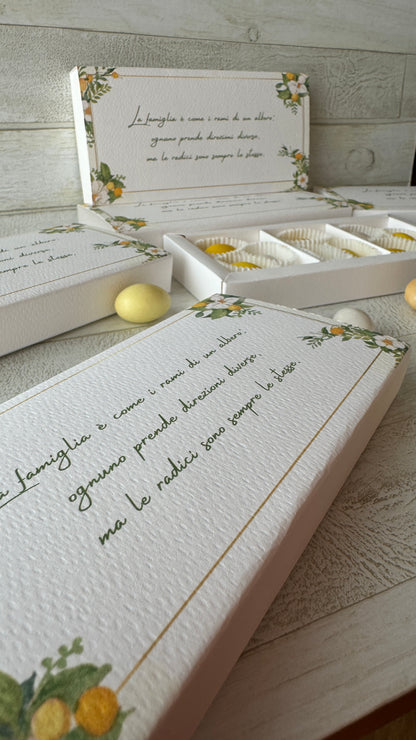 La famiglia è come i rami di un albero:
ognuno prende direzioni diverse,
ma le radici sono sempre le stesse.
ma le radici sono sempre le stesse.
sempre le stesse.
La famiglia è come i rami di un albero:
ognuno prende direzioni diverse,
ma le radici sono sempre le stesse.